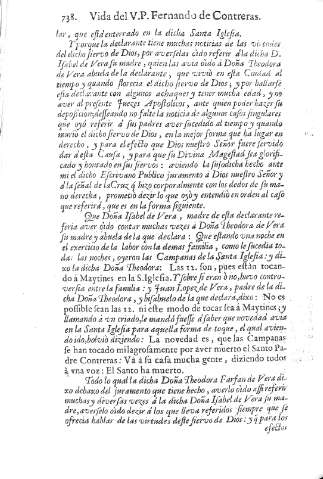 738. Vida del V.P. Fernando de Contreras.
lar, que està enterrado en la dicha Santa Iglesia.
Y porque la declarante tiene muchas noticias de las virtudes
del dicho siervo de Dios, por averselas oìdo referir à la dicha D.
Isabel de Vera su madre; quien las avia oìdo à Doña Theodora
de Vera abuela de la declarante, que vivió en esta Ciudad al
tiempo y quando florecia el dicho siervo de Dios; y por hallarse
esta declarante con algunos achaques y tener mucha edad, y no
aver al presente Juezes Apostolicos, ante quien poder hazer su
deposicion; y desseando no falte la noticia de algunos casos singulares
que oyò referir à sus padres aver sucedido al tiempo y quando
murió el dicho siervo de Dios, en la mejor forma que ha lugar en
derecho, y para el efecto que Dios nuestro Señor fuere servido
dar à esta Causa, y para que su Divina Magestad sea glorifi-
cado y honrado en su siervo: aviendo la susodicha hecho ante
mi el dicho Escrivano Publico juramento à Dios nuestro Señor y
à la señal de la Cruz q̃ hizo corporalmente con los dedos de su ma-
no derecha, prometió dezir lo que oyò y entendió en orden al caso
que referirà, que es en la forma siguiente.
Que Doña Isabel de Vera, madre de esta declarante re-
feria aver oìdo contar muchas vezes à Doña Theodora de Vera
su madre y abuela de la que declara: Que estando una noche en
el exercicio de la labor con la demas familia, como le sucedia to-
das las noches, oyeron las Campanas de la Santa Iglesia: y di-
xo la dicha Doña Theodora: Las 12. son, pues estàn tocan-
do à Maytines en la S. Iglesia. Y sobre si eran ò no, huvo contro-
versia entre la familia: y Juan Lopez de Vera, padre de la di-
cha Doña Theodora, y bisabuelo de la que declara, dixo: No es
possible sean las 12. ni este modo de tocar sea à Maytines; y
llamando à un criado, le mandó fuesse à saber que novedad avia
en la Santa Iglesia para aquella forma de toque, el qual avien-
do ido, bolvió diziendo: La novedad es, que las Campanas
se han tocado milagrosamente por aver muerto el Santo Pa-
dre Contreras: Và à su casa mucha gente, diziendo todos
à vna voz: El Santo ha muerto.
Todo lo qual la dicha Doña Theodora Farfan de Vera di-
xo debaxo del juramento que tiene hecho, averlo oìdo assi referir
muchas y diversas vezes à la dicha Doña Isabel de Vera su ma-
dre, averselo oìdo dezir à los que lleva referidos siempre que se
ofrecia hablar de las virtudes de este siervo de Dios: y q̃ para los
efectos